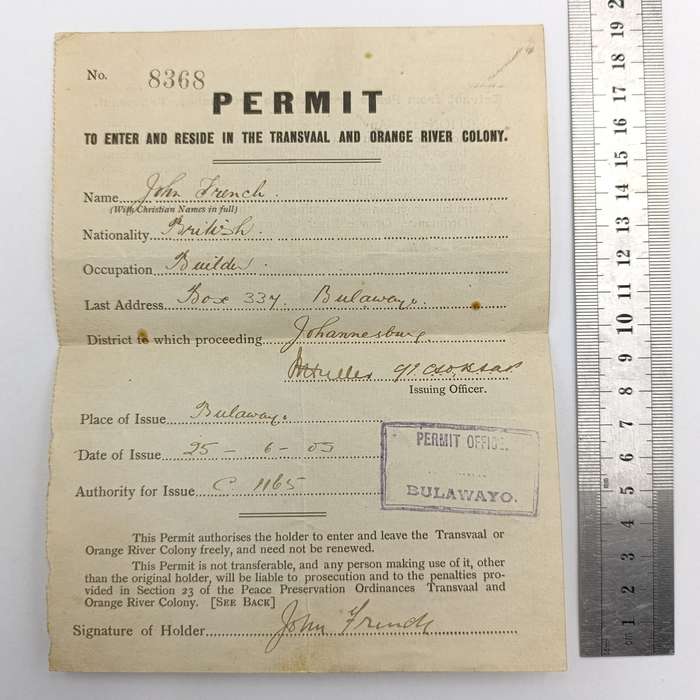 No. 8368
PERMIT
TO ENTER AND RESIDE IN THE TRANSVAAL AND ORANGE RIVER COLONY.
Name John French.
(With Christian Names in full)
Nationality British.
Occupation Builder
Last Address Box 337. Bulawayo.
District to which proceeding Johannesburg.
Issuing Officer.
Place of Issue Bulawayo.
Date of Issue 25 - 6 - 03
Authority for Issue C 1165
PERMIT OFFICE.
BULAWAYO.
This Permit authorises the holder to enter and leave the Transvaal or
Orange River Colony freely, and need not be renewed.
This Permit is not transferable, and any person making use of it, other
than the original holder, will be liable to prosecution and to the penalties pro-
vided in Section 23 of the Peace Preservation Ordinances Transvaal and
Orange River Colony. [SEE BACK]
Signature of Holder John French
cm 1 2 3 4 5 6 7 8 9 10 11 12 13 14 15 16 17 18 19